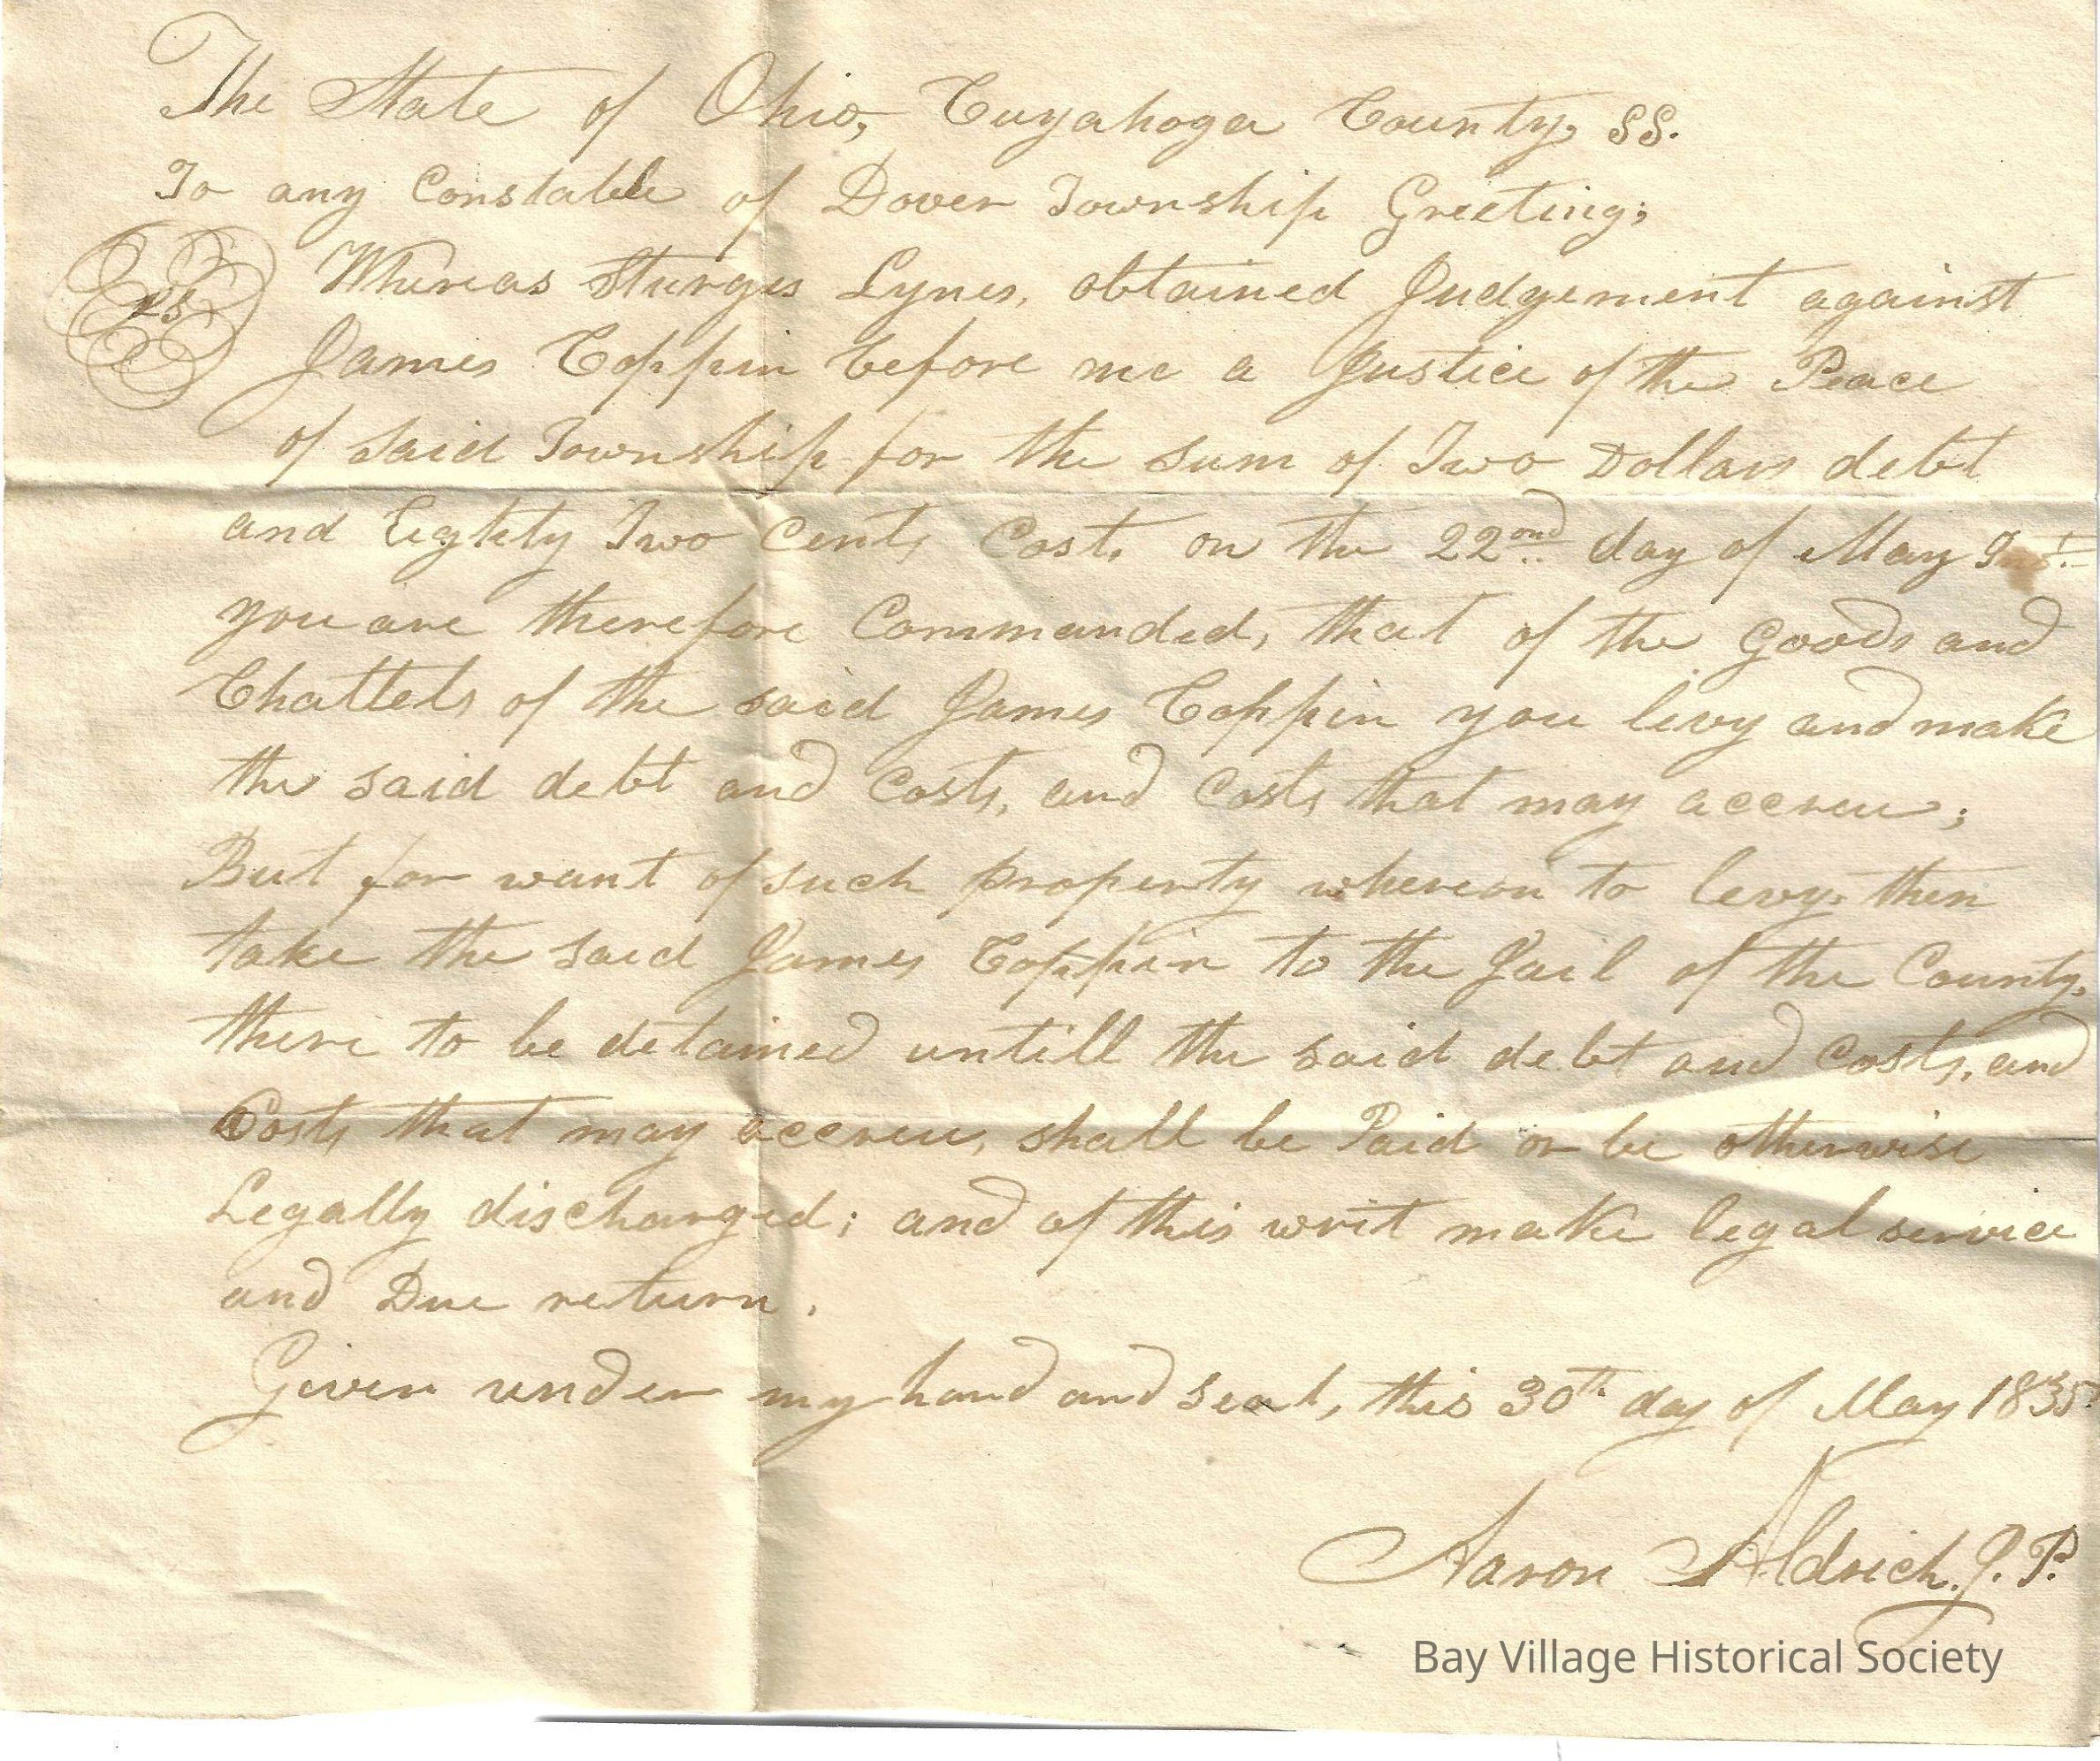 The State of Ohio, Cuyahoga County, SS.
To any Constable of Dover Township Greeting;
Whereas Sturges Lynes, obtained Judgement against
James Coppin before me a Justice of the Peace
of said Township for the sum of Two Dollars debt
and Eighty Two Cents Costs on the 22nd day of May
you are therefore Commanded, that of the Goods and
Chattels of the said James Coppin you levy and make
the said debt and Costs, and Costs that may accreu;
But for want of such property whereon to levy, then
take the said James Coppin to the Jail of the County,
there to be detained untill the said debt and Costs, and
Costs that may accreu, shall be Paid or be otherwise
Legally discharged; and of this writ make legal service
and Due return.
Given under my hand and seal, this 30th day of May 1835
Aaron Aldrich. J. P.
Bay Village Historical Society